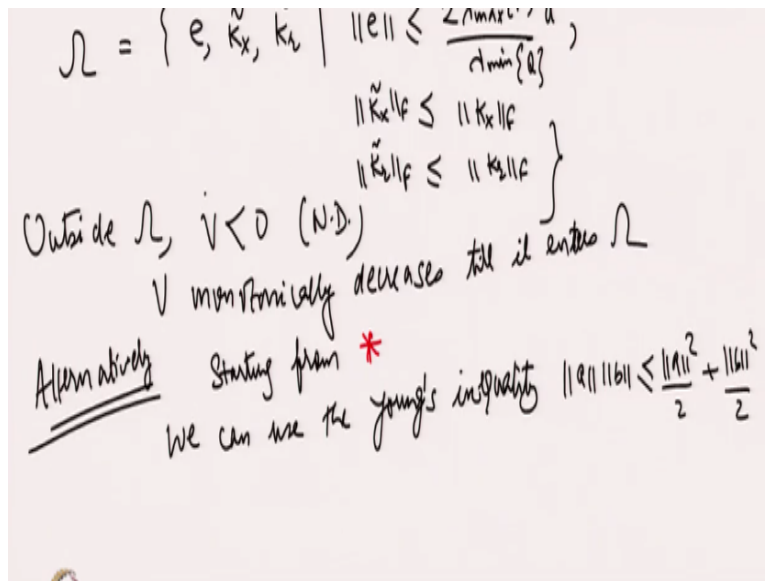 Ω = { e, k̃x, k̃r | ||e|| ≤ 2λmax{ } d / λmin{Q} ,
||k̃x||F ≤ ||kx||F
||k̃r||F ≤ ||kr||F }
Outside Ω, V̇<0 (N.D.)
V monotonically decreases till it enters Ω
Alternatively Starting from *
We can use the young's inequality ||a|| ||b|| ≤ ||a||²/2 + ||b||²/2